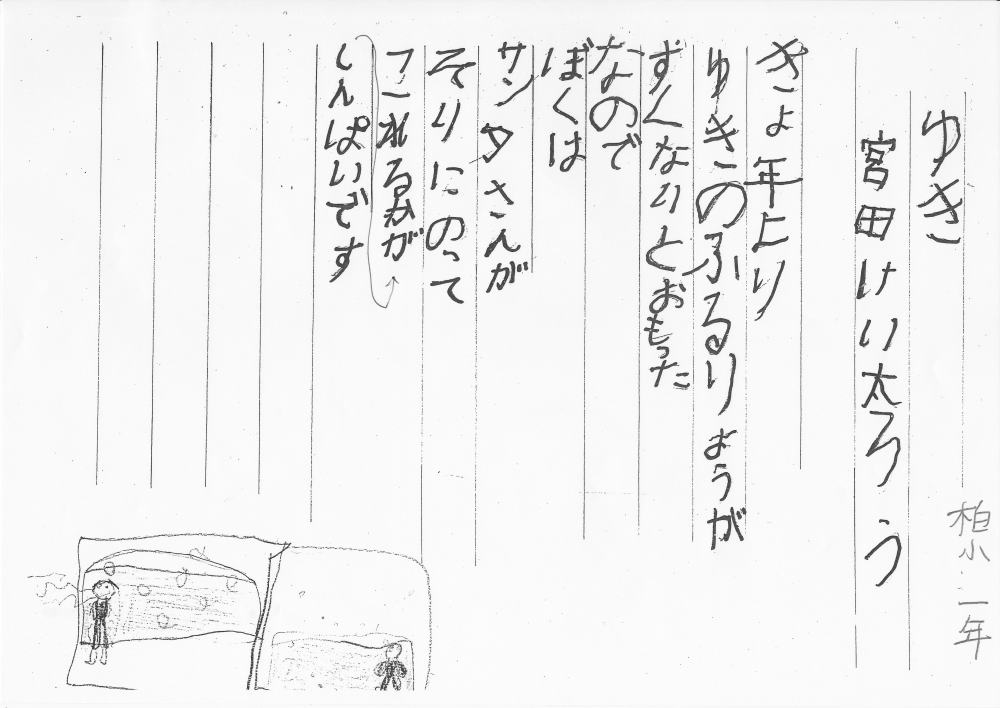 ゆき
宮田けい太ろう
柏小二年
きょ年より
ゆきのふるりょうが
すくないとおもった
なので
ぼくは
サンタさんが
そりにのって
これるかが
しんぱいです